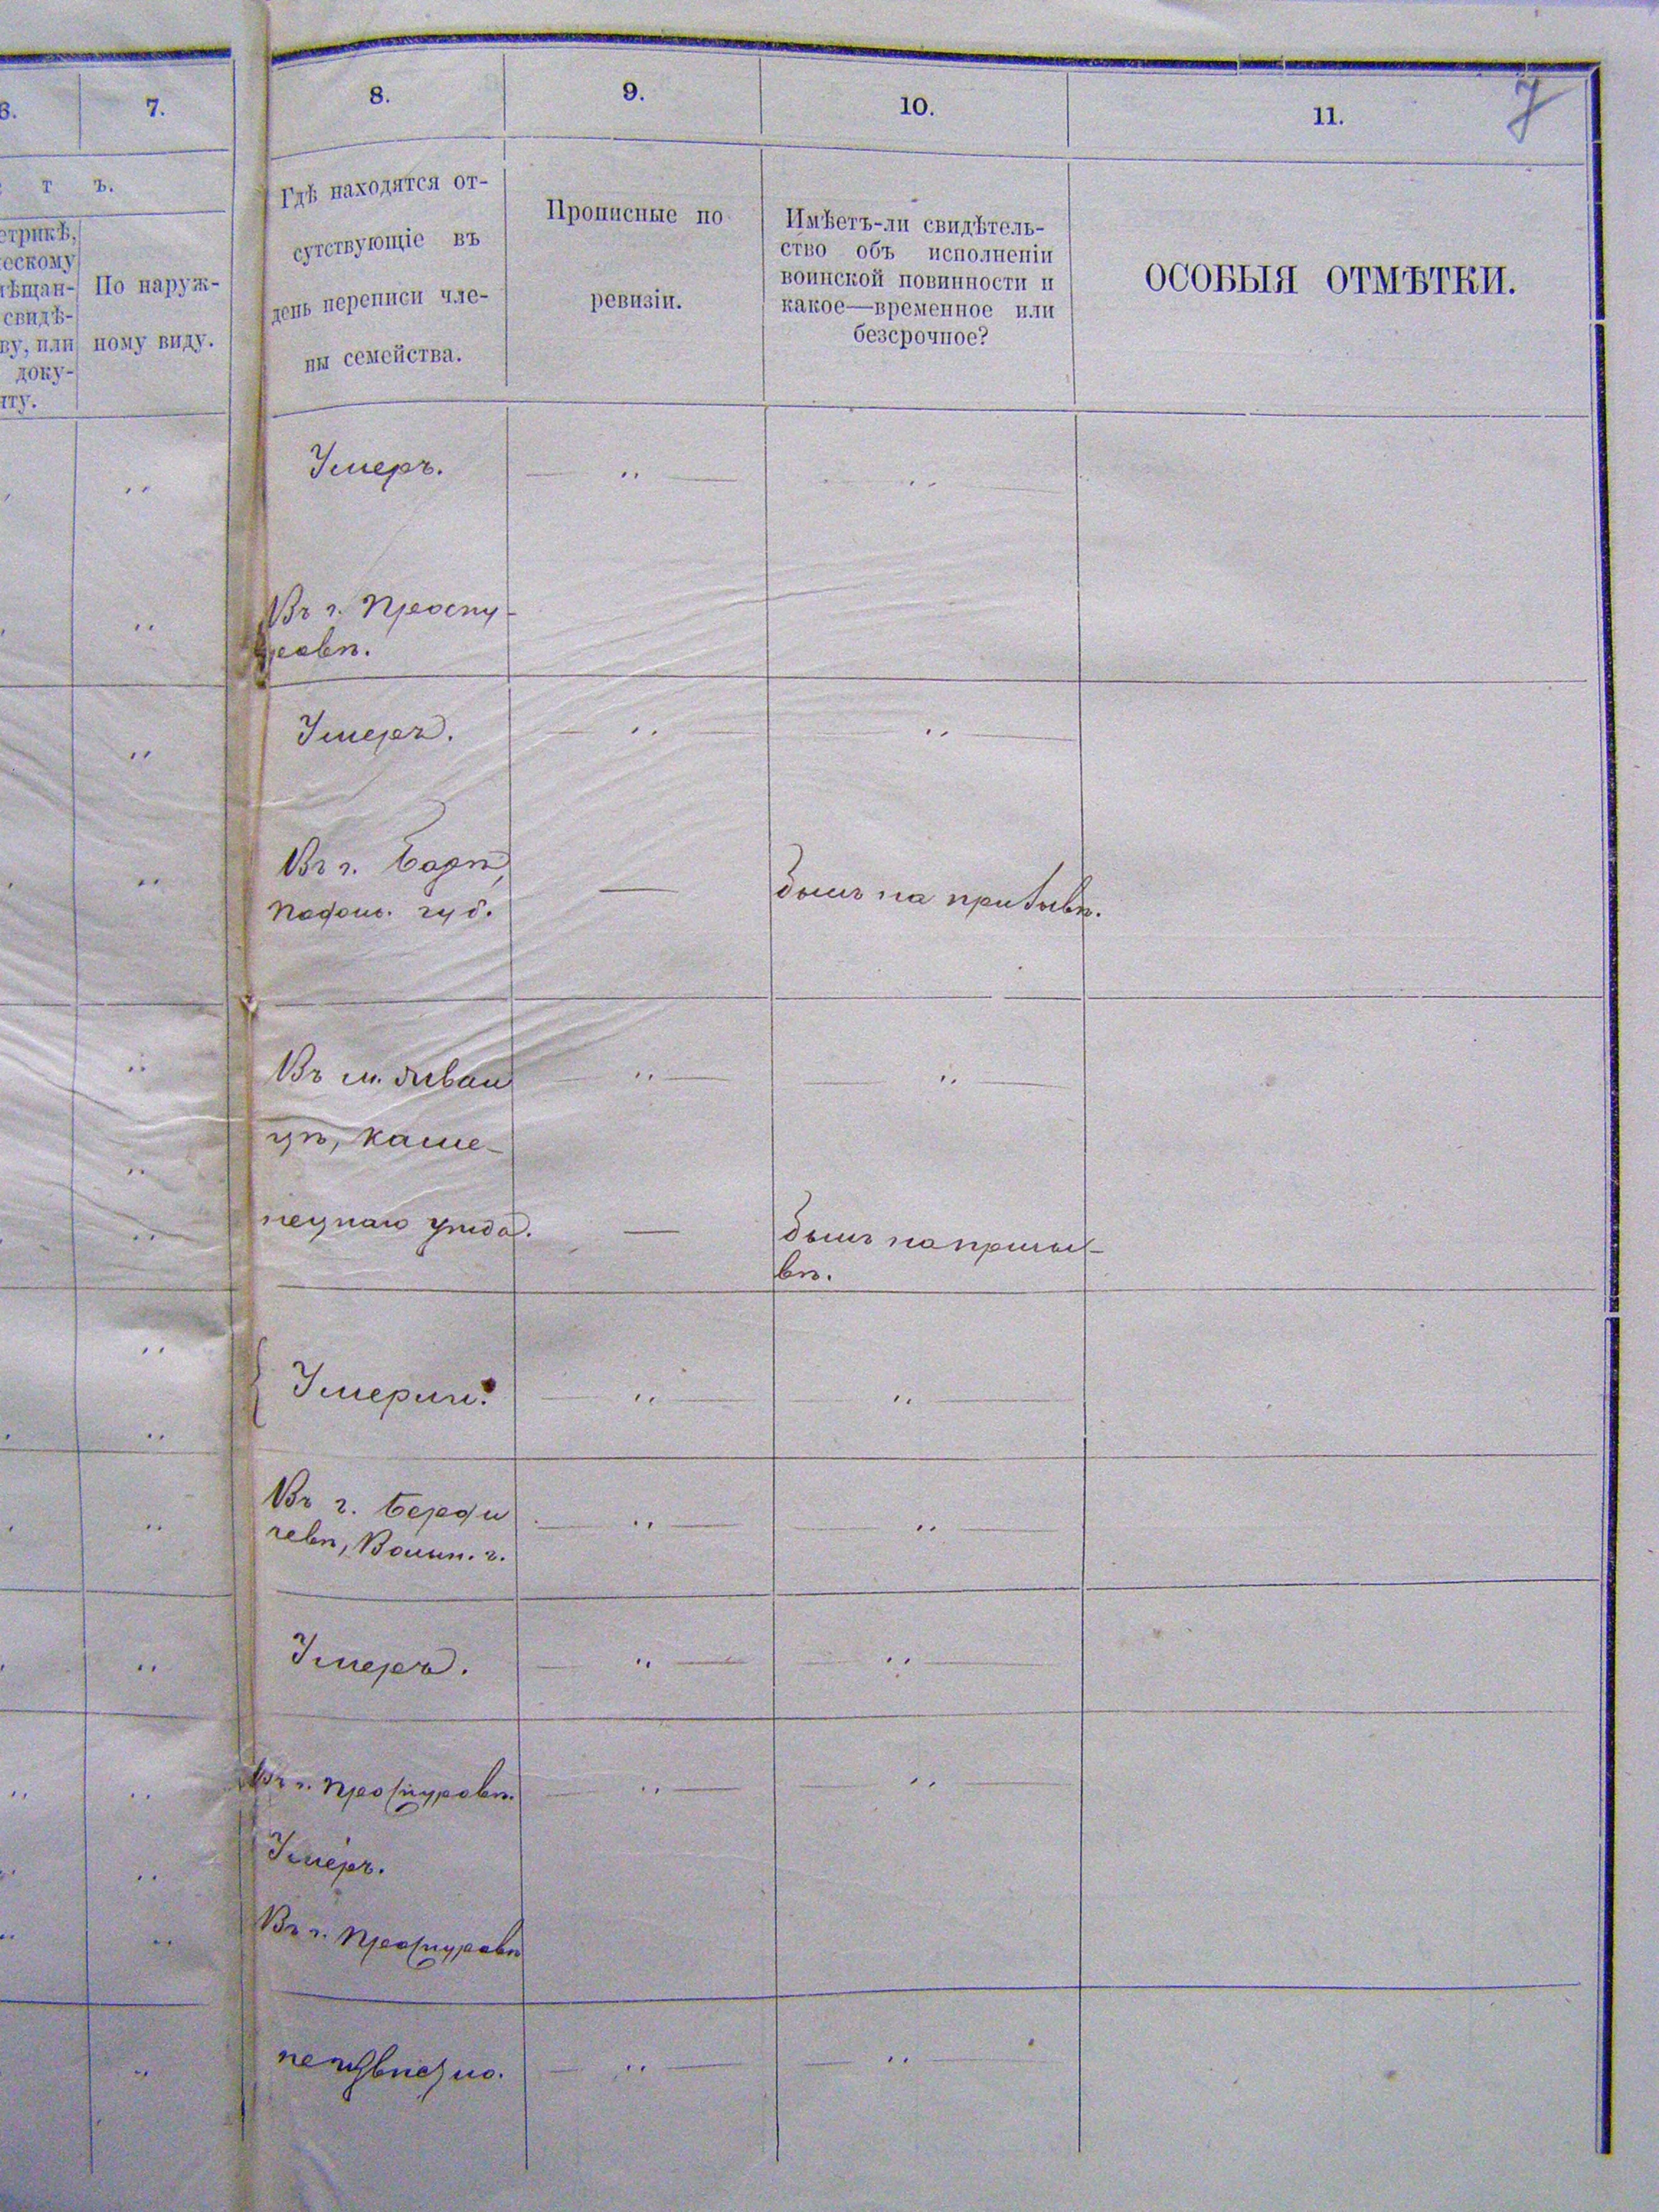 6.
7.
8.
9.
10.
11.
7
т ъ.
етрикѣ,
ческому
мѣщан-
свидѣ-
ву, или
доку-
нту.
По наруж-
ному виду.
Гдѣ находятся от-
сутствующіе въ
день переписи чле-
ны семейства.
Прописные по
ревизіи.
Имѣетъ-ли свидѣтель-
ство объ исполненіи
воинской повинности и
какое—временное или
безсрочное?
ОСОБЫЯ ОТМѢТКИ.
Умеръ.
Въ г. Проску-
ровѣ.
Умеръ.
Въ г. Барѣ,
Подол. губ.
былъ на призывѣ.
Въ м. Жван
цѣ, Каме-
нецкаго уѣзда.
былъ на призы-
вѣ.
Умерли.
Въ г. Берди
чевѣ, Волын. г.
Умеръ.
Въ г. Проскуровѣ.
Умеръ.
Въ г. Проскуровѣ
неизвѣстно.